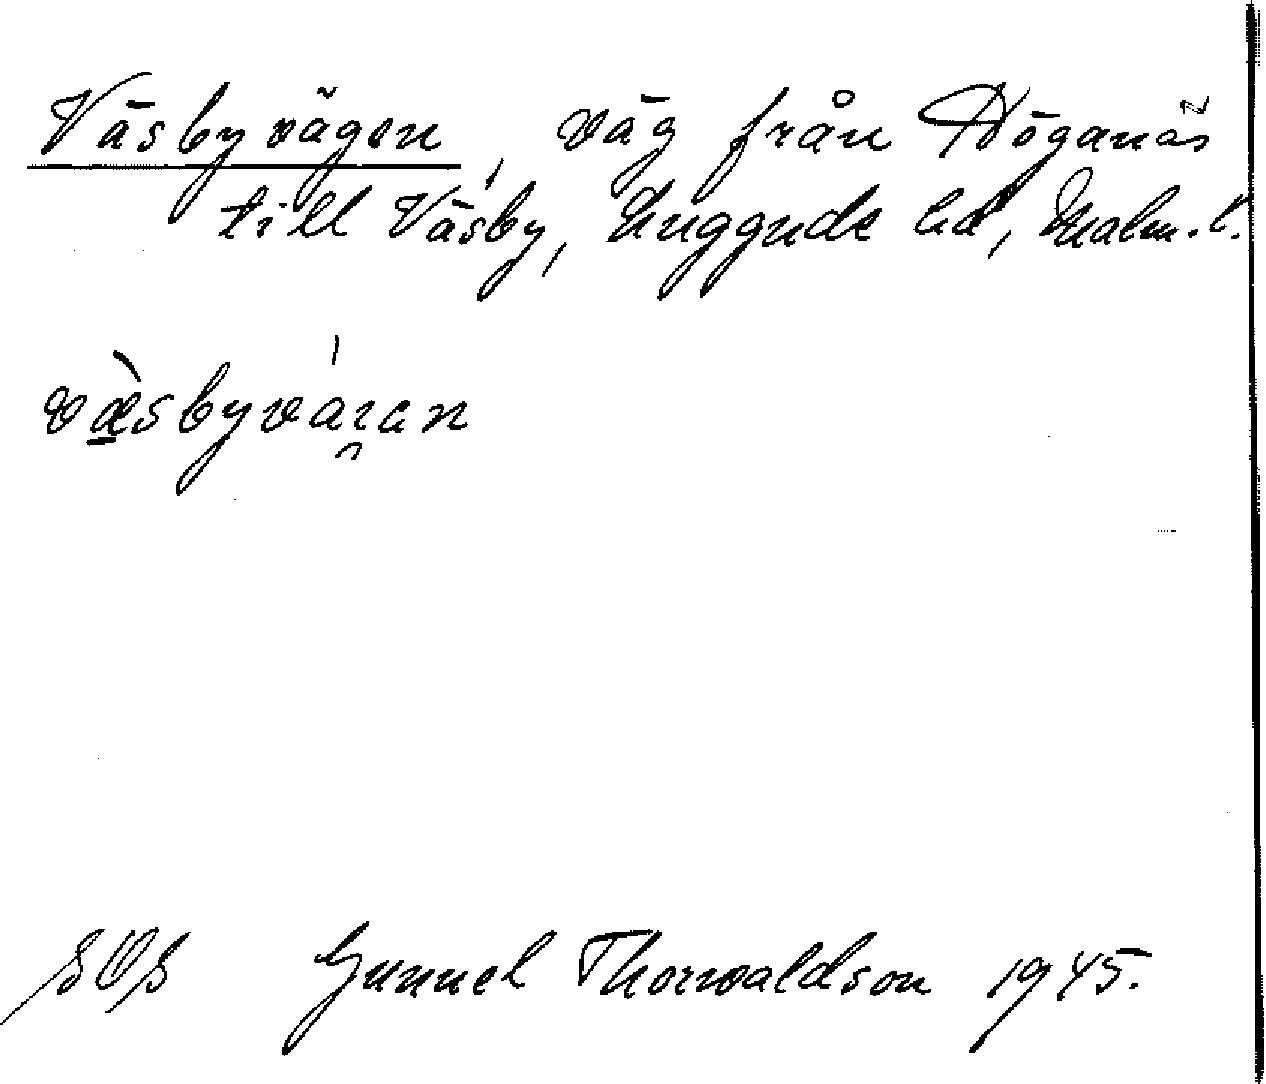 Väsbyvägen, väg från Höganäs
till Väsby, Luggude hd, Malm. l.
væ̀sbyváɪ̯an
Gunnel Thorwaldson 1945.